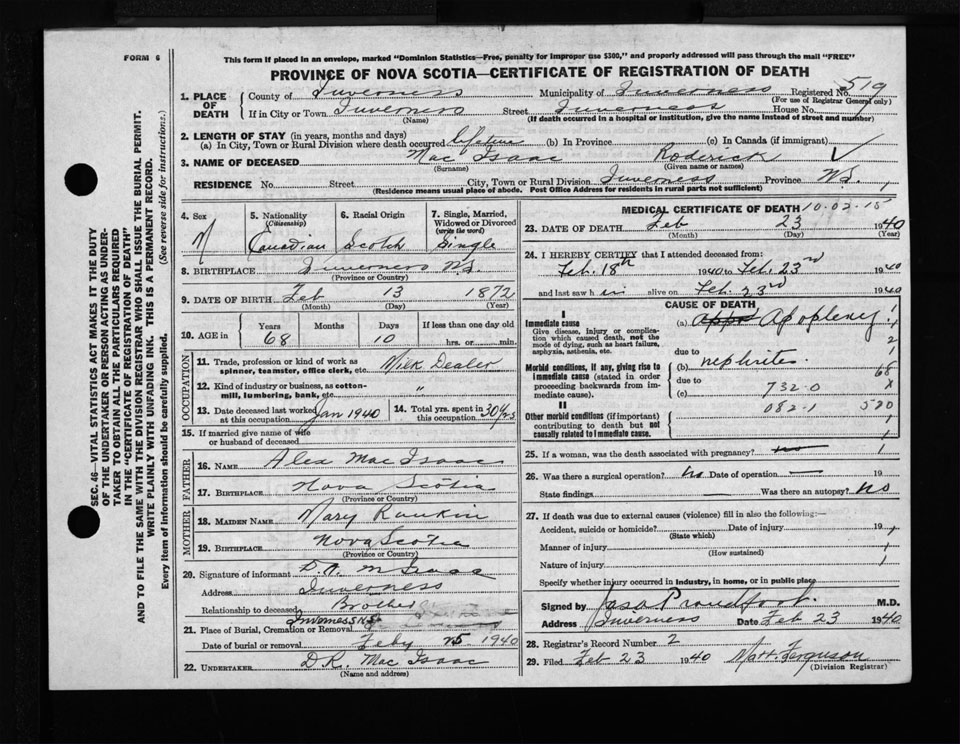 FORM 6
This form if placed in an envelope, marked "Dominion Statistics—Free, penalty for improper use $300," and properly addressed will pass through the mail "FREE"
PROVINCE OF NOVA SCOTIA—CERTIFICATE OF REGISTRATION OF DEATH
1. PLACE OF DEATH
County of Inverness Municipality of Inverness Registered No. 519
(For use of Registrar General only)
If in City or Town Inverness Street Inverness House No.
(Name) (If death occurred in a hospital or institution, give the name instead of street and number)
2. LENGTH OF STAY (in years, months and days)
(a) In City, Town or Rural Division where death occurred lifetime (b) In Province (c) In Canada (if immigrant)
3. NAME OF DECEASED Mac Isaac Roderick
(Surname) (Given name or names)
RESIDENCE No. Street City, Town or Rural Division Inverness Province N.S.
(Residence means usual place of abode. Post Office Address for residents in rural parts not sufficient)
4. Sex M
5. Nationality (Citizenship) Canadian
6. Racial Origin Scotch
7. Single, Married, Widowed or Divorced (write the word) Single
8. BIRTHPLACE Inverness N.S.
(Province or Country)
9. DATE OF BIRTH Feb 13 1872
(Month) (Day) (Year)
10. AGE in Years Months Days If less than one day old
68 10 hrs. or min.
OCCUPATION
11. Trade, profession or kind of work as spinner, teamster, office clerk, etc. Milk Dealer
12. Kind of industry or business, as cotton-mill, lumbering, bank, etc. "
13. Date deceased last worked at this occupation Jan 1940
14. Total yrs. spent in this occupation 30 yrs
15. If married give name of wife or husband of deceased
FATHER
16. NAME Alex Mac Isaac
17. BIRTHPLACE Nova Scotia
(Province or Country)
MOTHER
18. MAIDEN NAME Mary Rankin
19. BIRTHPLACE Nova Scotia
(Province or Country)
20. Signature of informant D.A. McIsaac
Address Inverness
Relationship to deceased Brother
21. Place of Burial, Cremation or Removal Inverness N.S.
Date of burial or removal Feby 25 1940
22. UNDERTAKER D.R. Mac Isaac
(Name and address)
MEDICAL CERTIFICATE OF DEATH 10-02-15
23. DATE OF DEATH Feb 23 1940
(Month) (Day) (Year)
24. I HEREBY CERTIFY that I attended deceased from:
Feb. 18th 1940 to Feb. 23rd 1940
and last saw h im alive on Feb. 23rd 1940
CAUSE OF DEATH
I
Immediate cause
Give disease, injury or complication which caused death, not the mode of dying, such as heart failure, asphyxia, asthenia, etc.
(a) Apoplexy
due to
(b) nephrites
Morbid conditions, if any, giving rise to immediate cause (stated in order proceeding backwards from immediate cause).
due to
(c) 732-0
II
082-1 520
Other morbid conditions (if important) contributing to death but not causally related to immediate cause.
25. If a woman, was the death associated with pregnancy? no
26. Was there a surgical operation? no Date of operation — 19
State findings — Was there an autopsy? No
27. If death was due to external causes (violence) fill in also the following:—
Accident, suicide or homicide? Date of injury 19
(State which)
Manner of injury
(How sustained)
Nature of injury
Specify whether injury occurred in industry, in home, or in public place
Signed by Jas. Proudfoot M.D.
Address Inverness Date Feb 23 1940
28. Registrar's Record Number 2
29. Filed Feb 23 1940 Matt Ferguson
(Division Registrar)
SEC. 46—VITAL STATISTICS ACT MAKES IT THE DUTY
OF THE UNDERTAKER OR PERSON ACTING AS UNDER-
TAKER TO OBTAIN ALL THE PARTICULARS REQUIRED
IN THE "CERTIFICATE OF REGISTRATION OF DEATH"
AND TO FILE THE SAME WITH THE DIVISION REGISTRAR WHO SHALL ISSUE THE BURIAL PERMIT.
WRITE PLAINLY WITH UNFADING INK. THIS IS A PERMANENT RECORD.
Every item of information should be carefully supplied. (See reverse side for instructions.)